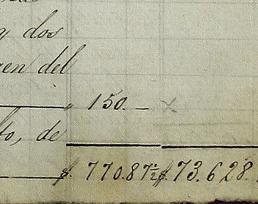 y dos
gen del
" 150. — x
to, de
$. 770.87½ $ 73.628.